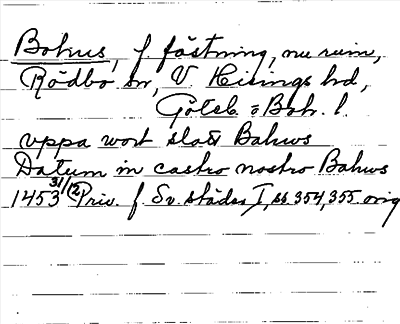 Bohus, f. fästning, nu ruin,
Rödbo sn, V. Hisings hd,
Göteb. o Boh. l.
uppa wort slott Bahws
Datum in castro nostro Bahws
1453 31/12 Priv. f. Sv. städer I, ss 354, 355. orig